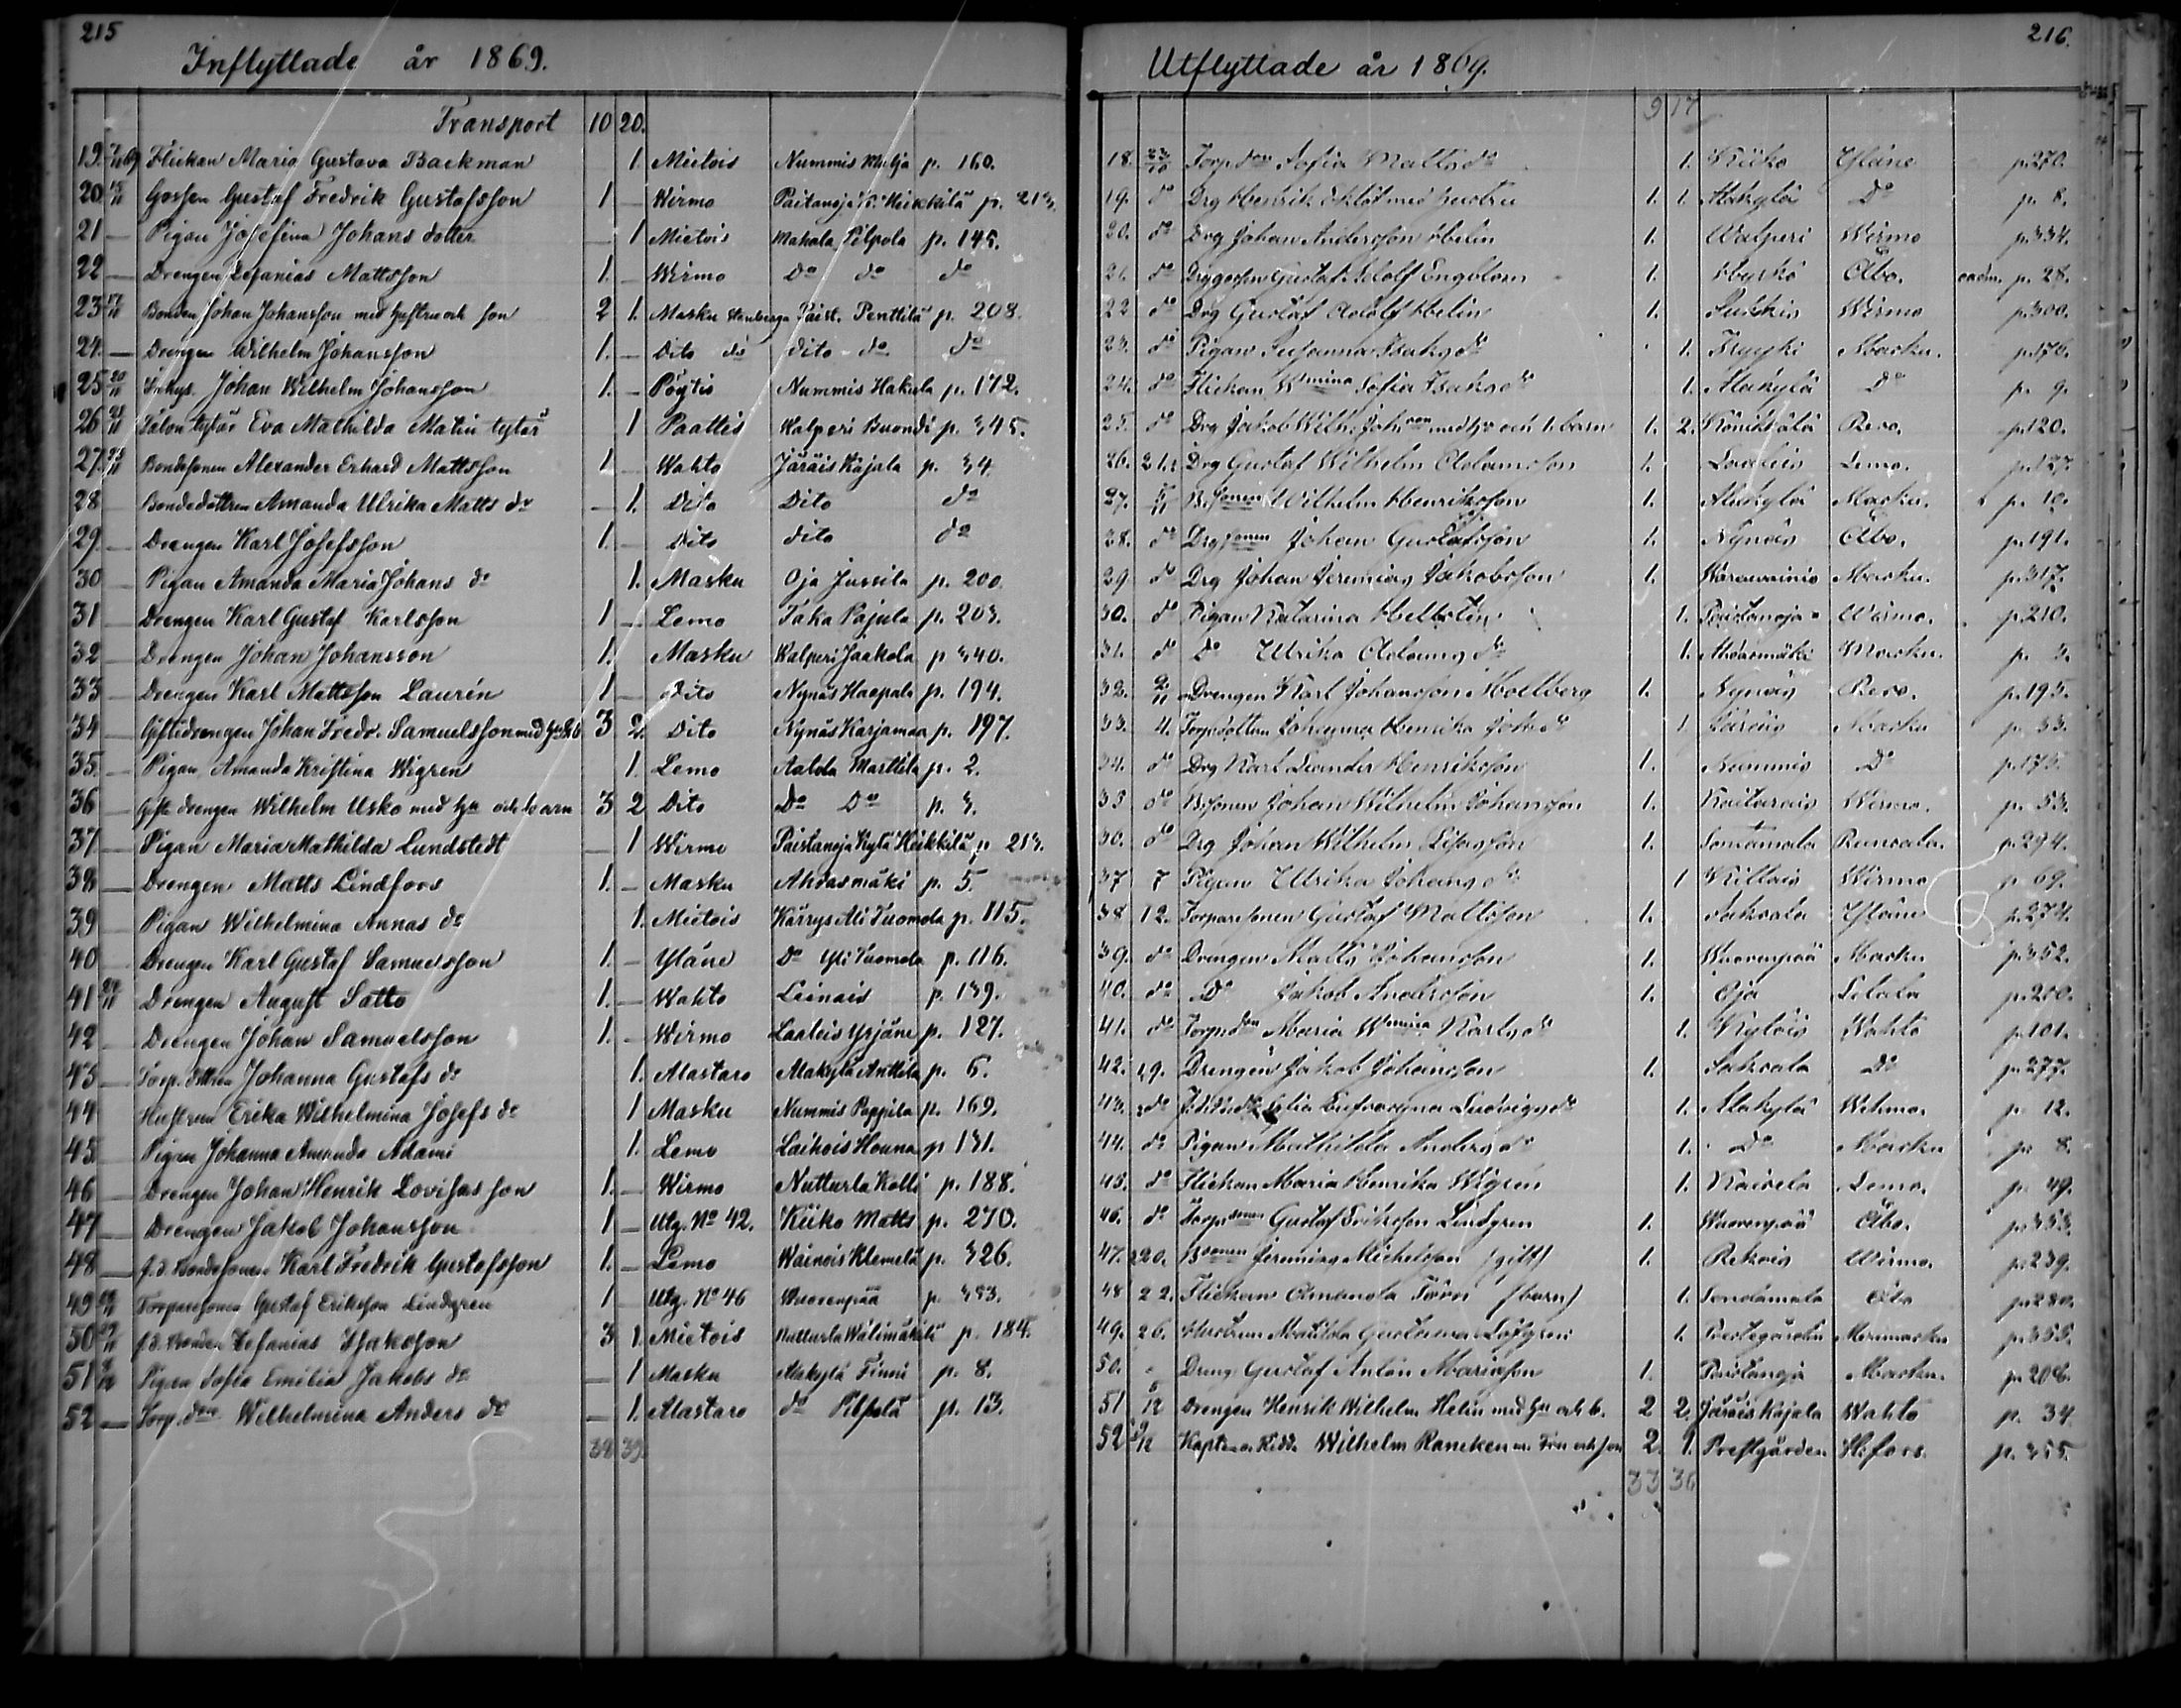 215
Inflyttade år 1869.
Transport 10 20.
19. 7/11 69 Flickan Maria Gustava Backman 1. Mietois Nummis Mulja p. 160.
20 15/11 Gossen Gustaf Fredrik Gustafsson 1 — Wirmo Paitanoja K. Heikkilä p. 213.
21 — Pigan Josefina Johans dotter — 1 Mietois Mahala Pilpola p. 145.
22 — Drengen Zefanias Mattsson 1. — Wirmo Do do do
23 17/11 Bonden Johan Johansson med hustru och son 2 1. Masku Stenberga Paist. Penttilä p. 208.
24. — Drengen Wilhelm Johansson 1. — Dito do dito do do
25 20/11 Johan Wilhelm Johansson 1. — Pöytis Nummis Hakula p. 172.
26 21/11 Talon tytär Eva Mathilda Matin tytär 1 Paattis Walperi Buondi p. 345.
27. 23/11 Bondesonen Alexander Erhard Mattsson 1 — Wahto Järäis Kajala p. 34.
28 — Bondedottren Amanda Ulrika Matts dr — 1. Dito Dito do
29. — Drengen Karl Josefsson 1. — Dito dito do
30 — Pigan Amanda Maria Johans dr 1. Masku Oja Jussila p. 200.
31 — Drengen Karl Gustaf Karlsson 1 — Lemo Taka Pajula p. 203.
32 — Drengen Johan Johansson 1. Masku Walperi Jaakola p 340.
33 — Drengen Karl Mattsson Laurén 1 — Dito Nynäs Haapala p. 194.
34 — Giftedrengen Johan Fredr. Samuelsson med hu & b 3 2. Dito Nynäs Karjamaa p. 197.
35. — Pigan Amanda Kristina Wigren 1. Lemo Aalola Marttila p. 2.
36 — Gifte drengen Wilhelm Usko med hu och barn 3 2 Dito Do Do p. 3.
37 — Pigan Maria Mathilda Lundstedt — 1 Wirmo Paistanoja Kylä Heikkilä p 213.
38 — Drengen Matts Lindfors 1. — Masku Ahdasmäki p. 5.
39 — Pigan Wilhelmina Annas dr 1. Mietois Kärrys Ali Tuomola p. 115.
40 — Drengen Karl Gustaf Samuelsson 1. — Yläne Do Yli Tuomola p. 116.
41 24/11 Drengen August Satto 1. — Wahto Leinais p. 139.
42 — Drengen Johan Samuelsson 1. — Wirmo Laaleis Yrjäne p. 127.
43 — Torp. dottren Johanna Gustafs dr 1. Alastaro Alakylä Anttila p. 6.
44 — Hustrun Erika Wilhelmina Josefs dr 1 Masku Nummis Pappila p. 169.
45 — Pigan Johanna Amanda Adami 1. Lemo Laikois Houna p 131.
46 — Drengen Johan Henrik Lovisasson 1. — Wirmo Nutturla Kolli p. 188.
47 — Drengen Jakob Johansson 1 — Utg. No 42. Kiiko Matts p. 270.
48 — f.d. Bondesonen Karl Fredrik Gustafsson 1. — Lemo Wainois Klemelä p. 326.
49 Torparesonen Gustaf Eriksson Lindgren 1 Utg. No 46 Wuorenpää p. 353.
50 f.d. Bonden Zefanias Isaksson 3 1. Mietois Nutturla Wälimäkilä p. 184.
51 Pigan Sofia Emilia Jakobs dr — 1 Masku Alakylä Finni p. 8.
52 — Torp. dren Wilhelmina Anders dr — 1. Alastaro do Pilpola p. 13.
38 39.
216.
Utflyttade år 1869.
9 17
18. 23/10 Torp. dren Sofia Matts dr 1. Kiiko Yläne p. 270.
19. do Drg Henrik Eklöf med hustru 1. 1. Alakylä Do p. 8.
20. do Drg Johan Andersson Helin 1. Walperi Wirmo p. 334.
21. do Drg gossen Gustaf Adolf Engblom 1. Hyrkö Åbo. p. 28.
22 do Drg Gustaf Adolf Helin 1. Wirmo p. 300.
23. do Pigan Susanna Isaks dr 1. Masku. p. 176.
24. do Flickan Wmina Sofia Isaks dr 1. Alakylä Do p. 9.
25. do Drg Jakob Wilh. Johsson med hu och 1. barn 1. 2. Könikkälä Reso. p. 120.
26. 21. Drg Gustaf Wilhelm Adamsson 1. Laaleis Lemo. p. 127.
27. Bsonen Wilhelm Henriksson 1. Alakylä Masku. p. 10.
28. do Drgsonen Johan Gustafsson 1. Nynäs Åbo. p. 191.
29 do Drg Johan Jeremias Jakobsson 1. Waravainio Masku. p. 317.
30. do Pigan Katarina Hellstén 1. Paistanoja Wirmo. p. 210.
31. do Do Ulrika Adams dr 1. Ahdasmäki Masku. p. 3.
32. 2/11 Drengen Karl Johansson Mollberg 1. Nynäs Reso. p. 195.
33. 4. Torpdottren Johanna Henrika Joh. dr 1 Järäis Masku p. 33.
34. do Drg Karl Leander Henriksson 1. Nummis Do p. 175.
35 do Bsonen Johan Wilhelm Johansson 1. Kaitarais Wirmo. p. 53.
36. do Drg Johan Wilhelm Lisasson 1. Sontamala Rimsala. p. 294.
37 7 Pigan Ulrika Johans dr 1 Killais Wirmo p. 69.
38 12. Torparesonen Gustaf Mattsson 1. Sahvala Yläne p. 274.
39. do Drengen Matts Johansson 1. Wuorenpää Masku p. 352.
40. do Do Jakob Andersson 1. Oja Letala p. 200.
41. do Torp. dren Maria Wmina Karls dr 1. Kyläis Wahto p. 101.
42. 19. Drengen Jakob Johansson 1. Sahvala Do p. 277.
43. do Eufrosyna Ludvigs dr 1. Alakylä Wehmo. p. 12.
44. do Pigan Mathilda Anders dr 1. Do Masku p. 8.
45. do Flickan Maria Henrika Wigren 1. Kaisela Lemo. p. 49.
46. do Torpsonen Gustaf Eriksson Lindgren 1. Wuorenpää Åbo. p. 353.
47. 20. Bsonen Jeremias Michelsson (gift) 1. Rekois Wirmo. p. 239.
48 22. Flickan Amanda Törn (barn) 1. Sondamala Åbo p. 280.
49. 26. Hustrun Matilda Gustava Löfgren 1. Prestgården Merimasku p. 355.
50. Dreng Gustaf Anton Mariasson 1. Paistanoja Masku. p. 208.
51 5/12 Drengen Henrik Wilhelm Helin med hu och b. 2 2. Järäis Kajala Wahto p. 34.
52 /12 Kapten o. Ridd. Wilhelm Rancken m. Fru och son 2. 1. Prestgården H:fors. p. 355.
33 36